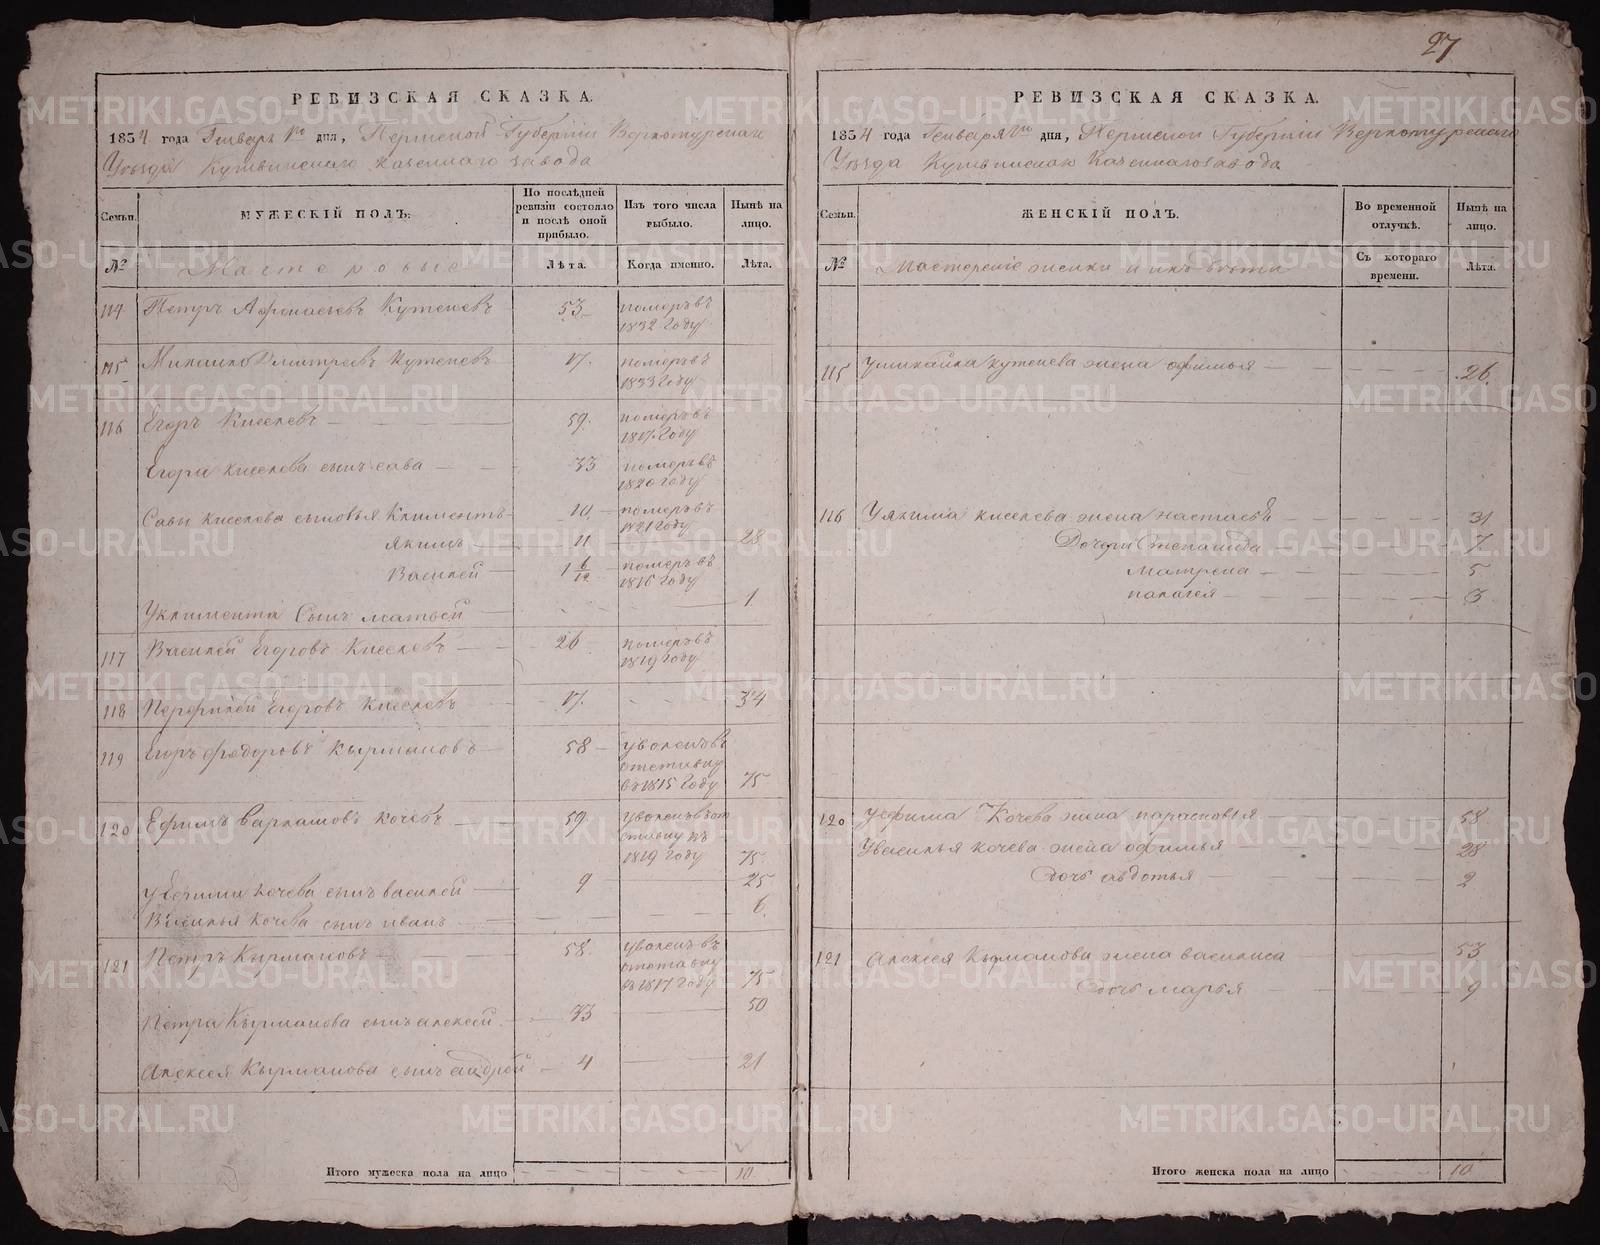 27
РЕВИЗСКАЯ СКАЗКА.
1834 года Генваря дня, Пермской Губернiи Верхотурскаго
Уѣзда Кушвинскаго казеннаго завода
Семьи.
МУЖЕСКIЙ ПОЛЪ:
По послѣдней ревизiи состояло и послѣ оной прибыло.
Изъ того числа выбыло.
Нынѣ на лицо.
№
Мастеровые
Лѣта.
Когда именно.
Лѣта.
114 Петръ Афонасьевъ Кутеневъ 53 померъ въ 1832 году
115 Михайло Дмитреевъ Кутеневъ 17. померъ въ 1833 году
116 Егоръ Киселевъ 59. померъ въ 1817 году
Егора Киселева сынъ сава 33 померъ въ 1820 году
Савы Киселева сыновья Климентъ померъ въ 1821 году
Якимъ 11 28
Василей 1 6/12 померъ въ 1816 году
У климента Сынъ матвей 1
117 Василей Егоровъ Киселевъ 26 померъ въ 1819 году
118 Перфилей Егоровъ Киселевъ 17. 34
119 Егоръ федоровъ Кырмановъ 58 уволенъ въ отставку въ 1815 году 75
120 Ефимъ Варламовъ Кочевъ 59 уволенъ въ отставку въ 1819 году 75
У Ефима кочева сынъ василей 9 25
Василья Кочева сынъ иванъ 6.
121 Петръ Кырмановъ 58. уволенъ въ отставку въ 1817 году 75
Петра Кырманова сынъ алексей 33 50
Алексея Кырманова сынъ андрей 4 21
Итого мужеска пола на лицо 10
РЕВИЗСКАЯ СКАЗКА.
1834 года Генваря дня, Пермской Губернiи Верхотурскаго
Уѣзда Кушвинскаго Казеннаго завода
Семьи.
ЖЕНСКIЙ ПОЛЪ.
Во временной отлучкѣ.
Нынѣ на лицо.
№
Мастерскiе женки и ихъ дѣти
Съ котораго времени.
Лѣта.
115 У михайла кутенева жена офимья 26.
116 У якима киселева жена настасья 31
Дочери Степанида 7.
матрена 5
палагея 3
120 У ефима Кочева жена парасковья 58
У василья кочева жена офимья 28
Дочь авдотья 2
121 Алексея Кырманова жена василиса 53
Дочь марья 9
Итого женска пола на лицо 10
METRIKI.GASO-URAL.RU